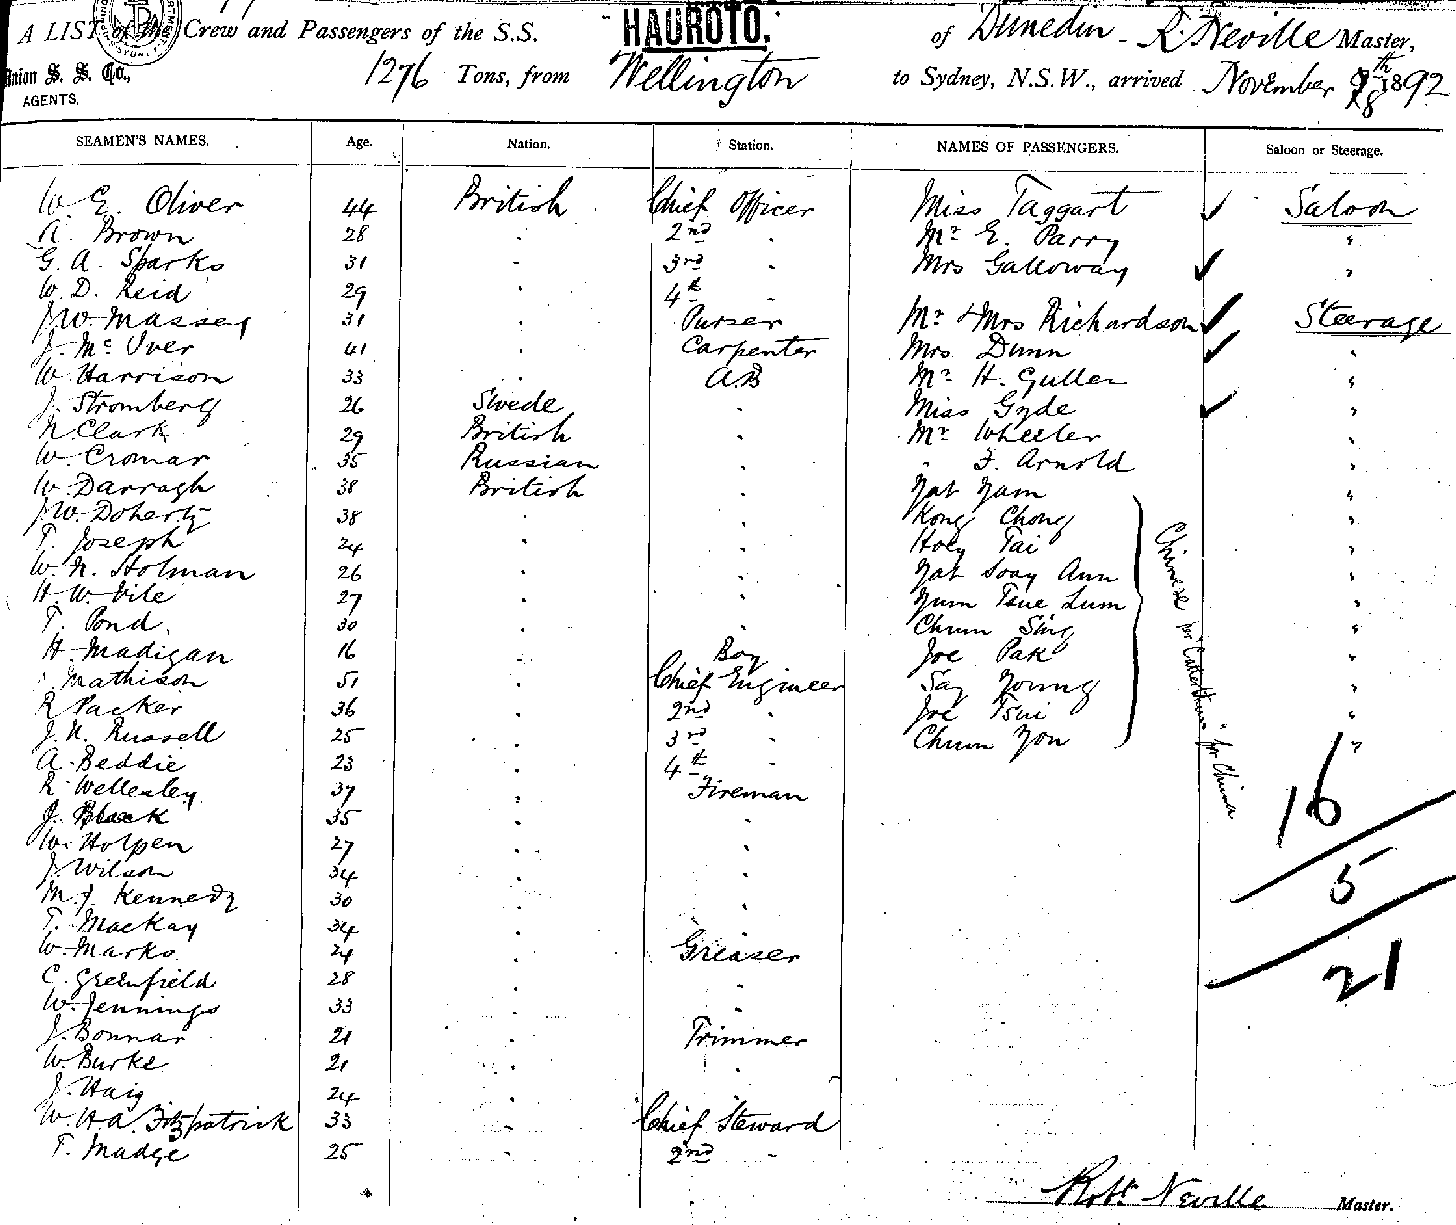 A LIST of the Crew and Passengers of the S.S. HAUROTO. of Dunedin - R. Neville Master,
Union S. S. Co., AGENTS. 1276 Tons, from Wellington to Sydney, N.S.W., arrived November 8th 1892
SEAMEN'S NAMES. Age. Nation. Station. NAMES OF PASSENGERS. Saloon or Steerage.
W. E. Oliver 44 British Chief Officer Miss Taggart ✓ Saloon
A. Brown 28 " 2nd " Mr E. Parry "
G. A. Sparks 31 " 3rd " Mrs Galloway ✓ "
W. D. Reid 29 " 4th "
J. W. Massey 31 " Purser Mr & Mrs Richardson ✓ Steerage
J. McIver 41 " Carpenter Mrs Dunn ✓ "
W. Harrison 33 " AB Mr H. Gullen "
J. Stromberg 26 Swede " Miss Gyde ✓ "
N Clark 29 British " Mr Wheeler "
W. Cromar 35 Russian " " F. Arnold "
W. Darragh 38 British " Yat Yam "
J. W. Doherty 38 " " Kong Chong "
T. Joseph 24 " " Hoey Tai "
W. N. Holman 26 " " Yat Soay Ann "
H. W. Vile 27 " " Yum Tsue Lum "
T. Pond 30 " " Chum Sing "
H. Madigan 16 " Boy Joe Pak "
Mathison 51 " Chief Engineer Say Young "
R Packer 36 " 2nd " Joe Tsui "
J. N. Russell 25 " 3rd " Chum Yon "
Chinese pr "Catterthun" for China
A. Beddie 23 " 4th "
R. Wellesley 37 " Fireman
J. Black 35 " "
16
W. Holpen 27 " "
J. Wilson 34 " "
5
M. J. Kennedy 30 " "
T. Mackay 34 " "
W. Marks 24 " Greaser
21
C. Greenfield 28 " "
W. Jennings 33 "
J. Bonnar 21 " Trimmer
W. Burke 21 " "
J. Haig 24 "
W. H. A. Fitzpatrick 33 " Chief Steward
T. Madge 25 " 2nd "
Robt Neville Master.